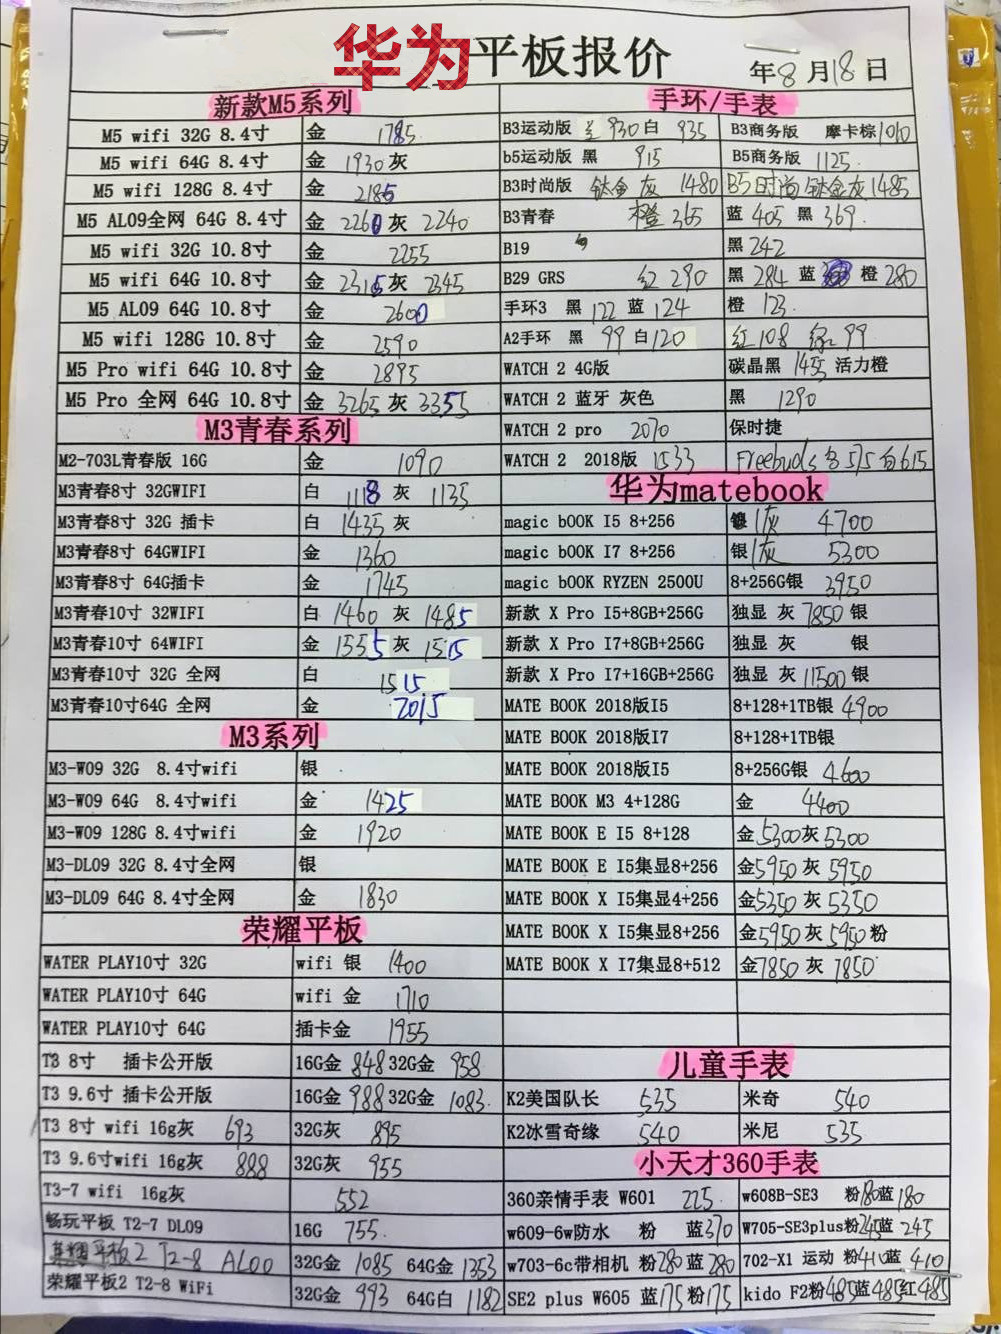 华为平板报价
年8月18日
新款M5系列
M5 wifi 32G 8.4寸 金 1785
M5 wifi 64G 8.4寸 金 1930 灰
M5 wifi 128G 8.4寸 金 2185
M5 AL09全网 64G 8.4寸 金 2260 灰 2240
M5 wifi 32G 10.8寸 金 2255
M5 wifi 64G 10.8寸 金 2315 灰 2345
M5 AL09 64G 10.8寸 金 2600
M5 wifi 128G 10.8寸 金 2590
M5 Pro wifi 64G 10.8寸 金 2895
M5 Pro 全网 64G 10.8寸 金 3265 灰 3355
M3青春系列
M2-703L青春版 16G 金 1090
M3青春8寸 32GWIFI 白 1118 灰 1135
M3青春8寸 32G 插卡 白 1435 灰
M3青春8寸 64GWIFI 金 1360
M3青春8寸 64G插卡 金 1745
M3青春10寸 32WIFI 白 1460 灰 1485
M3青春10寸 64WIFI 金 1555 灰 1515
M3青春10寸 32G 全网 白 1515
M3青春10寸64G 全网 金 2015
M3系列
M3-W09 32G 8.4寸wifi 银
M3-W09 64G 8.4寸wifi 金 1425
M3-W09 128G 8.4寸wifi 金 1920
M3-DL09 32G 8.4寸全网 银
M3-DL09 64G 8.4寸全网 金 1830
荣耀平板
WATER PLAY10寸 32G wifi 银 1400
WATER PLAY10寸 64G wifi 金 1710
WATER PLAY10寸 64G 插卡金 1955
T3 8寸 插卡公开版 16G金 848 32G金 958
T3 9.6寸 插卡公开版 16G金 988 32G金 1083
T3 8寸 wifi 16g灰 693 32G灰 895
T3 9.6寸wifi 16g灰 888 32G灰 955
T3-7 wifi 16g灰 552
畅玩平板 T2-7 DL09 16G 755
荣耀平板2 T2-8 AL00 32G金 1085 64G金 1353
荣耀平板2 T2-8 WiFi 32G金 993 64G白 1182
手环/手表
B3运动版 930 白 935 B3商务版 摩卡棕1010
b5运动版 黑 915 B5商务版 1125
B3时尚版 钛金灰 1480 B5时尚钛金灰1485
B3青春 橙 365 蓝 405 黑 369
B19 黑 242
B29 GRS 红 290 黑 284 蓝 橙 280
手环3 黑 122 蓝 124 橙 123
A2手环 黑 99 白120 红108 绿 99
WATCH 2 4G版 碳晶黑 1455 活力橙
WATCH 2 蓝牙 灰色 黑 1290
WATCH 2 pro 2070 保时捷
WATCH 2 2018版 1533 Freebuds 515 白615
华为matebook
magic bOOK I5 8+256 灰 4700
magic bOOK I7 8+256 银 灰 5300
magic bOOK RYZEN 2500U 8+256G银 3950
新款 X Pro I5+8GB+256G 独显 灰 7850 银
新款 X Pro I7+8GB+256G 独显 灰 银
新款 X Pro I7+16GB+256G 独显 灰 11500 银
MATE BOOK 2018版I5 8+128+1TB银 4900
MATE BOOK 2018版I7 8+128+1TB银
MATE BOOK 2018版I5 8+256G银 4600
MATE BOOK M3 4+128G 金 4400
MATE BOOK E I5 8+128 金5300灰5300
MATE BOOK E I5集显8+256 金5950 灰 5950
MATE BOOK X I5集显4+256 金5350 灰 5350
MATE BOOK X I5集显8+256 金5950灰5950粉
MATE BOOK X I7集显8+512 金7850 灰 7850
儿童手表
K2美国队长 535 米奇 540
K2冰雪奇缘 540 米尼 535
小天才360手表
360亲情手表 W601 225 w608B-SE3 粉180蓝180
w609-6w防水 粉 蓝370 W705-SE3plus粉245蓝 245
w703-6c带相机 粉280蓝280 702-X1 运动 粉410蓝 410
SE2 plus W605 蓝175粉175 kido F2粉485蓝485红485